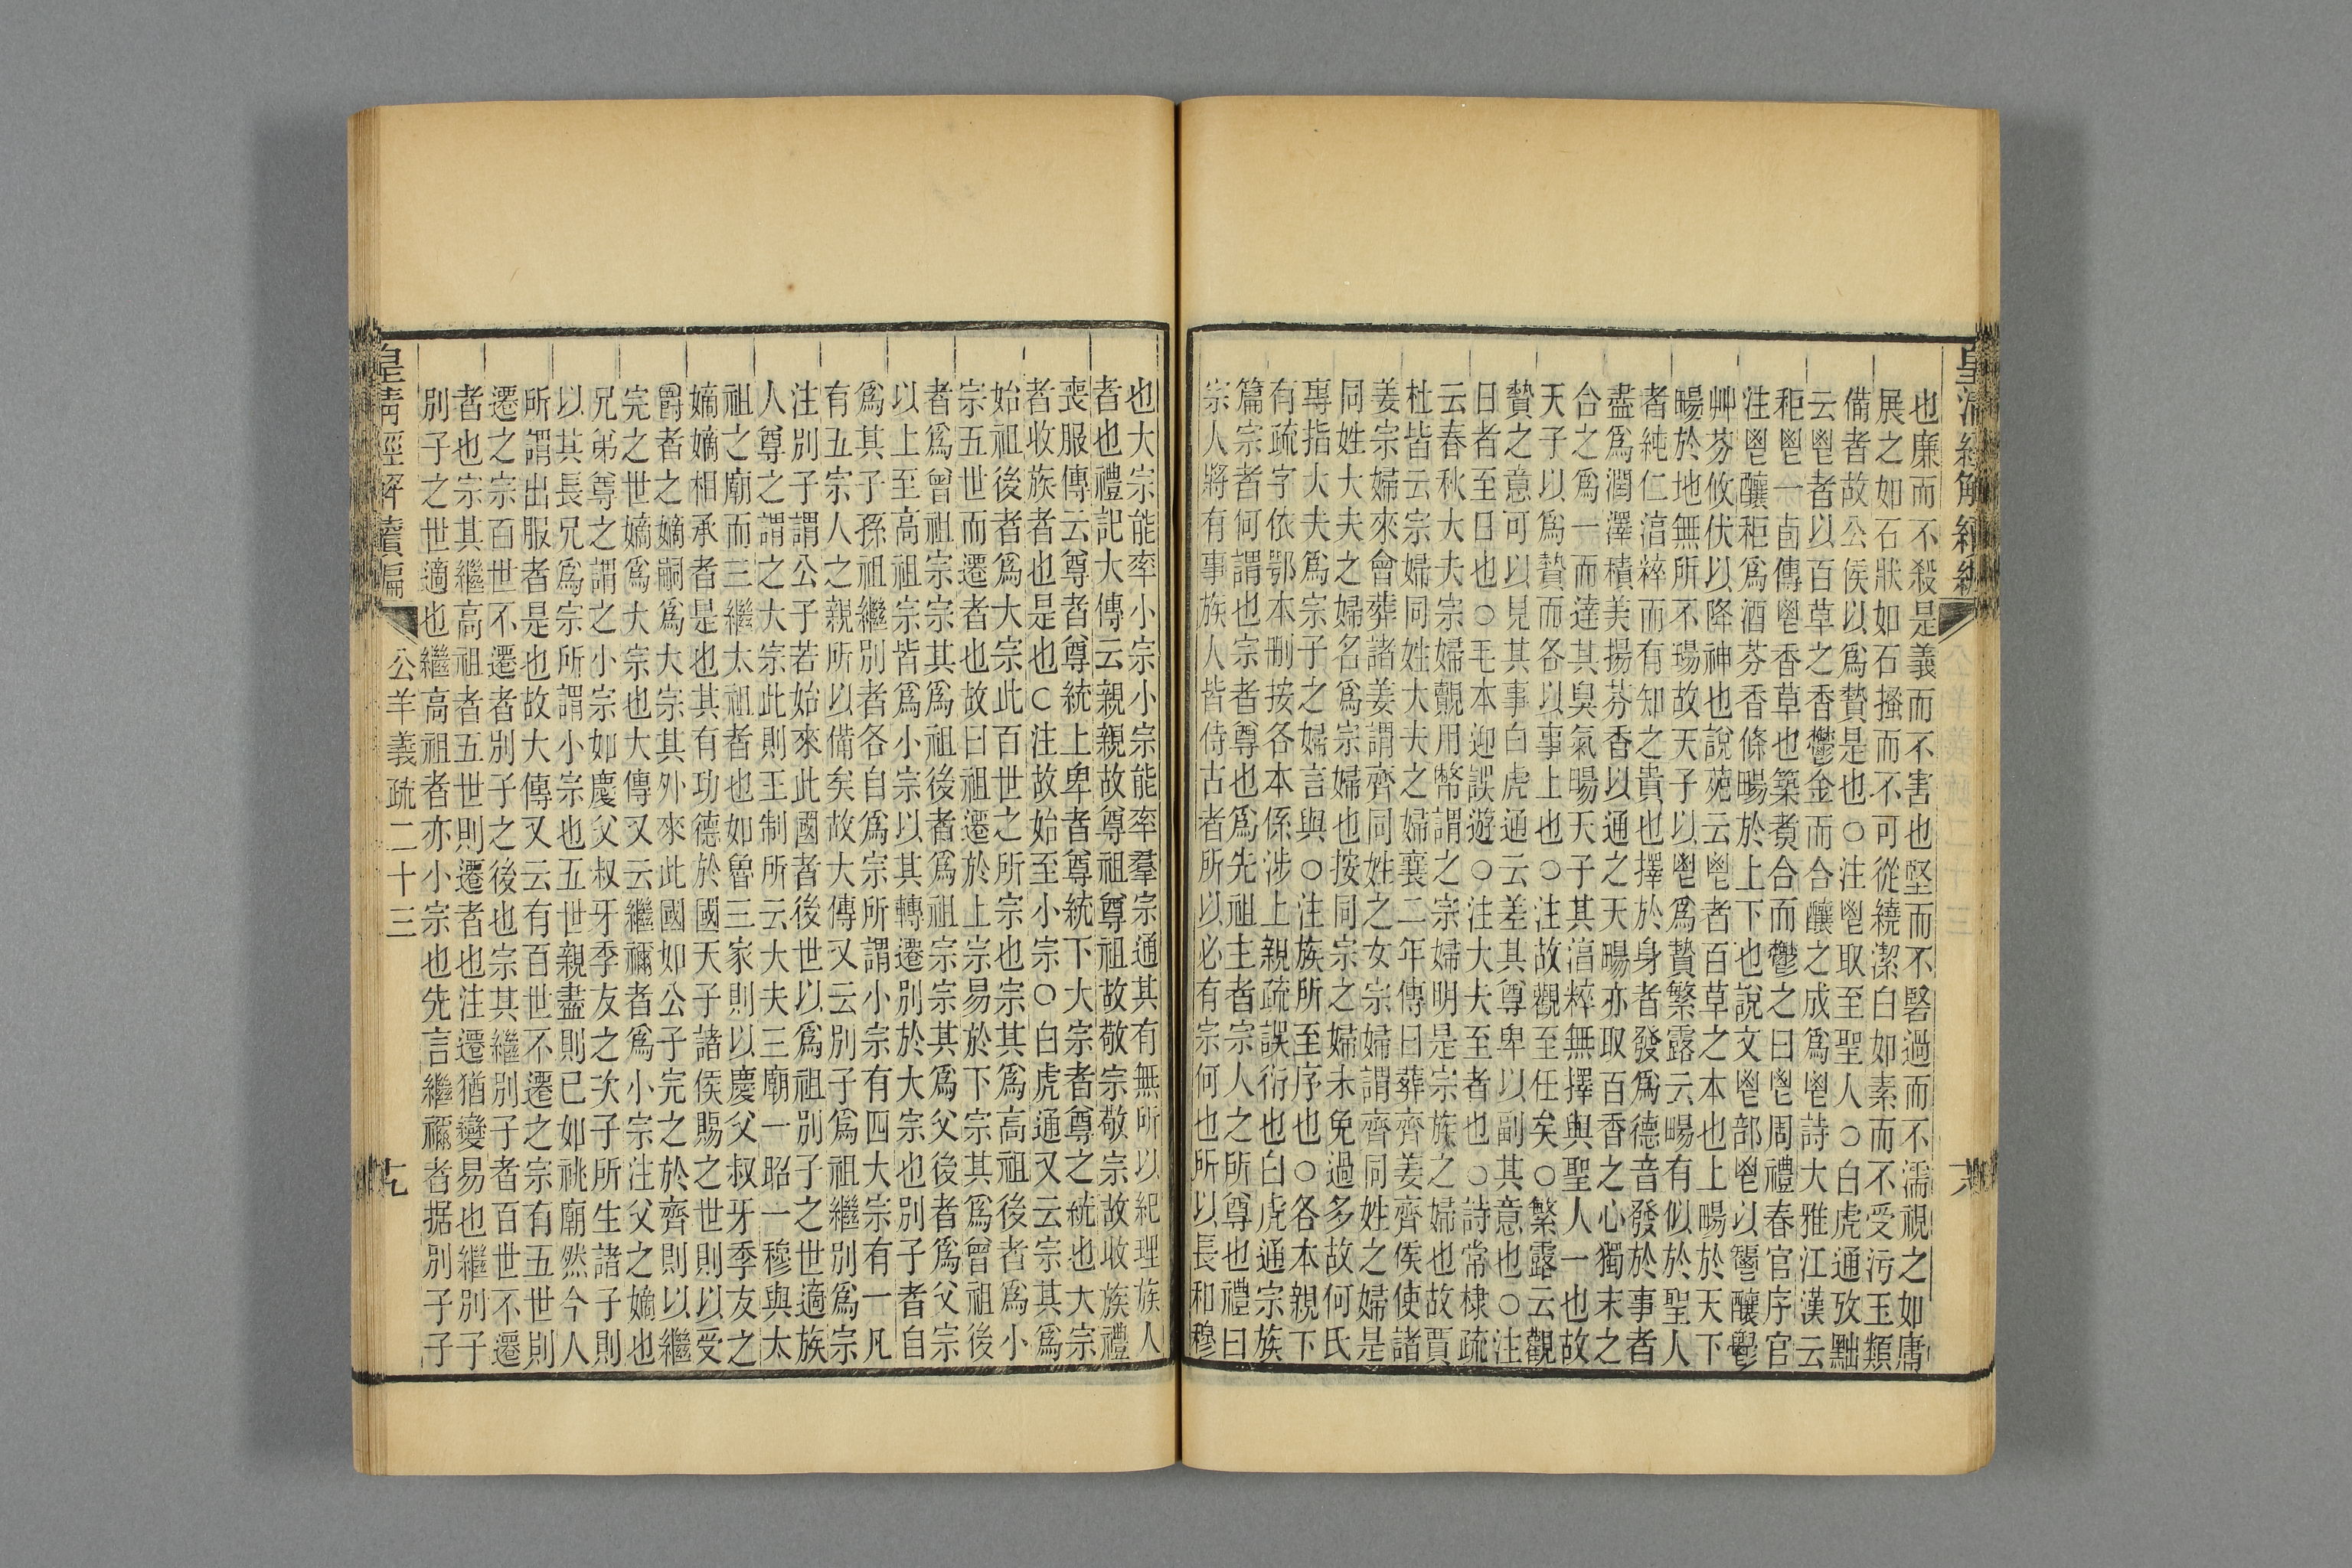 皇清經解續編
也廉而不殺是義而不害也堅而不硻過而不濡視之如庸
展之如石狀如石搔而不可從繞潔白如素而不受污玉類
備者故公侯以爲贄是也○注鬯取至聖人○白虎通攷黜
云鬯者以百草之香鬱金而合釀之成爲鬯詩大雅江漢云
秬鬯一卣傳鬯香草也築煑合而鬱之曰鬯周禮春官序官
注鬯釀秬爲酒芬香條暢於上下也說文鬯部鬯以秬釀鬱
艸芬攸伏以降神也說苑云鬯者百草之本也上暢於天下
暢於地無所不暢故天子以鬯爲贄繁露云暢有似於聖人
者純仁湻粹而有知之貴也擇於身者發爲德音發於事者
盡爲潤澤積美揚芬香以通之天暢亦取百香之心獨末之
合之爲一而達其臭氣暢天子其湻粹無擇與聖人一也故
天子以爲贄而各以事上也○注故觀至任矣○繁露云觀
贄之意可以見其事白虎通云差其尊卑以副其意也○注
日者至日也○毛本迎誤遊○注大夫至者也○詩常棣疏
云春秋大夫宗婦覿用幣謂之宗婦明是宗族之婦也故賈
杜皆云宗婦同姓大夫之婦襄二年傳曰葬齊姜齊侯使諸
姜宗婦來會葬諸姜謂齊同姓之女宗婦謂齊同姓之婦是
同姓大夫之婦名爲宗婦也按同宗之婦未免過多故何氏
專指大夫爲宗子之婦言與○注族所至序也○各本親下
有疏字依鄂本刪按各本係涉上親疏誤衍也白虎通宗族
篇宗者何謂也宗者尊也爲先祖主者宗人之所尊也禮曰
宗人將有事族人皆侍古者所以必有宗何也所以長和穆
也大宗能率小宗小宗能率羣宗通其有無所以紀理族人
者也禮記大傳云親親故尊祖尊祖故敬宗敬宗故收族禮
喪服傳云尊者尊統上卑者尊統下大宗者尊之統也大宗
者收族者也是也○注故始至小宗○白虎通又云宗其爲
始祖後者爲大宗此百世之所宗也宗其爲高祖後者爲小
宗五世而遷者也故曰祖遷於上宗易於下宗其爲曾祖後
者爲曾祖宗宗其爲祖後者爲祖宗宗其爲父後者爲父宗
以上至高祖宗皆爲小宗以其轉遷別於大宗也別子者自
爲其子孫祖繼別者各自爲宗所謂小宗有四大宗有一凡
有五宗人之親所以備矣故大傳又云別子爲祖繼別爲宗
注別子謂公子若始來此國者後世以爲祖別子之世適族
人尊之謂之大宗此則王制所云大夫三廟一昭一穆與太
祖之廟而三繼太祖者也如魯三家則以慶父叔牙季友之
嫡嫡相承者是也其有功德於國天子諸侯賜之世則以受
爵者之嫡嗣爲大宗其外來此國如公子完之於齊則以繼
完之世嫡爲大宗也大傳又云繼禰者爲小宗注父之嫡也
兄弟尊之謂之小宗如慶父叔牙季友之次子所生諸子則
以其長兄爲宗所謂小宗也五世親盡則已如祧廟然今人
所謂出服者是也故大傳又云有百世不遷之宗有五世則
遷之宗百世不遷者別子之後也宗其繼別子者百世不遷
者也宗其繼高祖者五世則遷者也注遷猶變易也繼別子
別子之世適也繼高祖者亦小宗也先言繼禰者据別子子
皇清經解續編 公羊義疏二十三